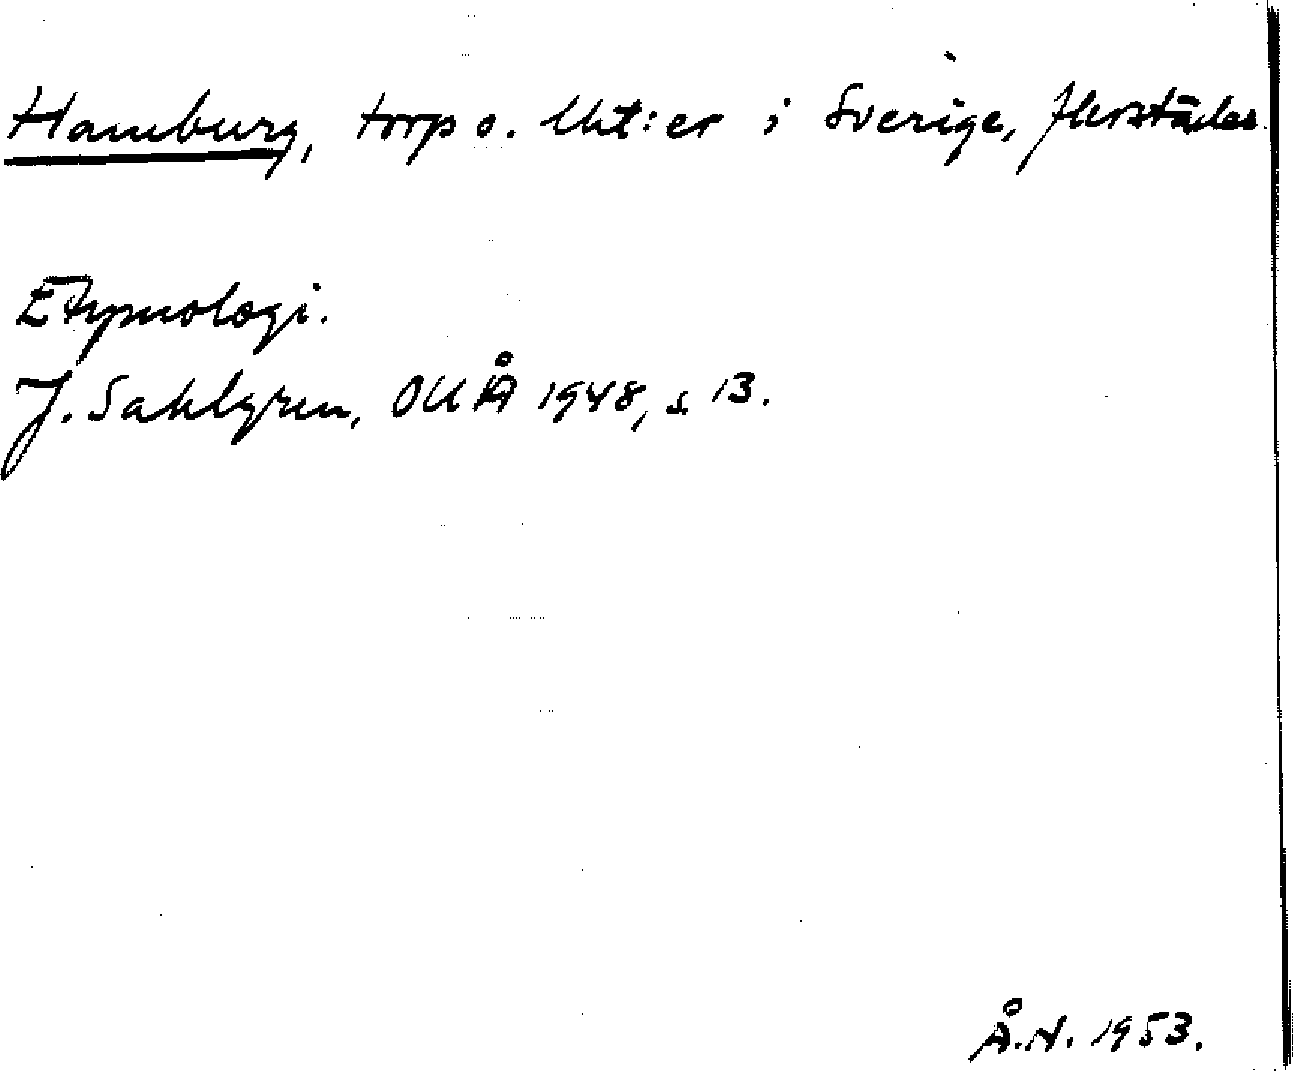 Hamburg, torp o. lht:er i Sverige, flerstädes.
Etymologi.
J. Sahlgren, OUÅ 1948, s 13.
Å.N. 1953.